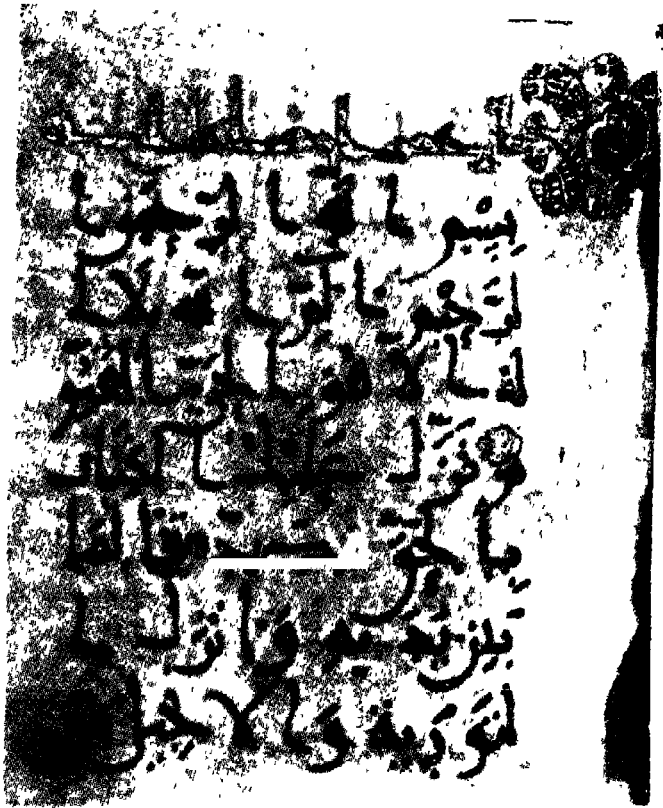 بسم الله الرحمن ا
لرحيم الم الله لا ا
له الا هو الحي القيو
م نزل عليك الكتاب
بالحق مصدقا لما
بين يديه وانزل ا
لتورية والانجيل